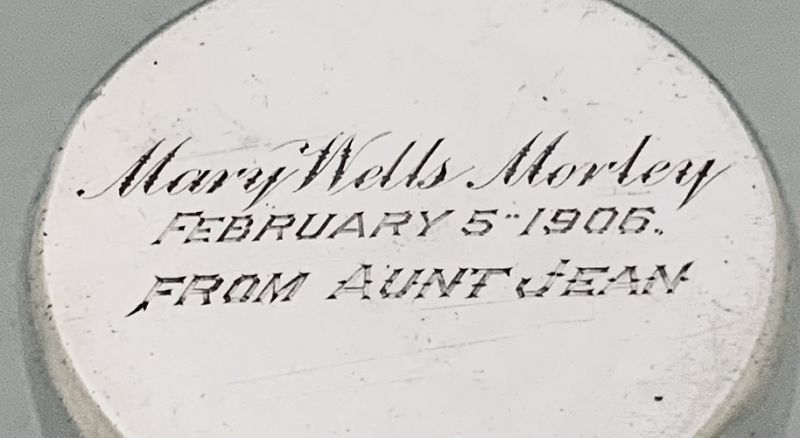 Mary Wells Morley
FEBRUARY 5" 1906.
FROM AUNT JEAN